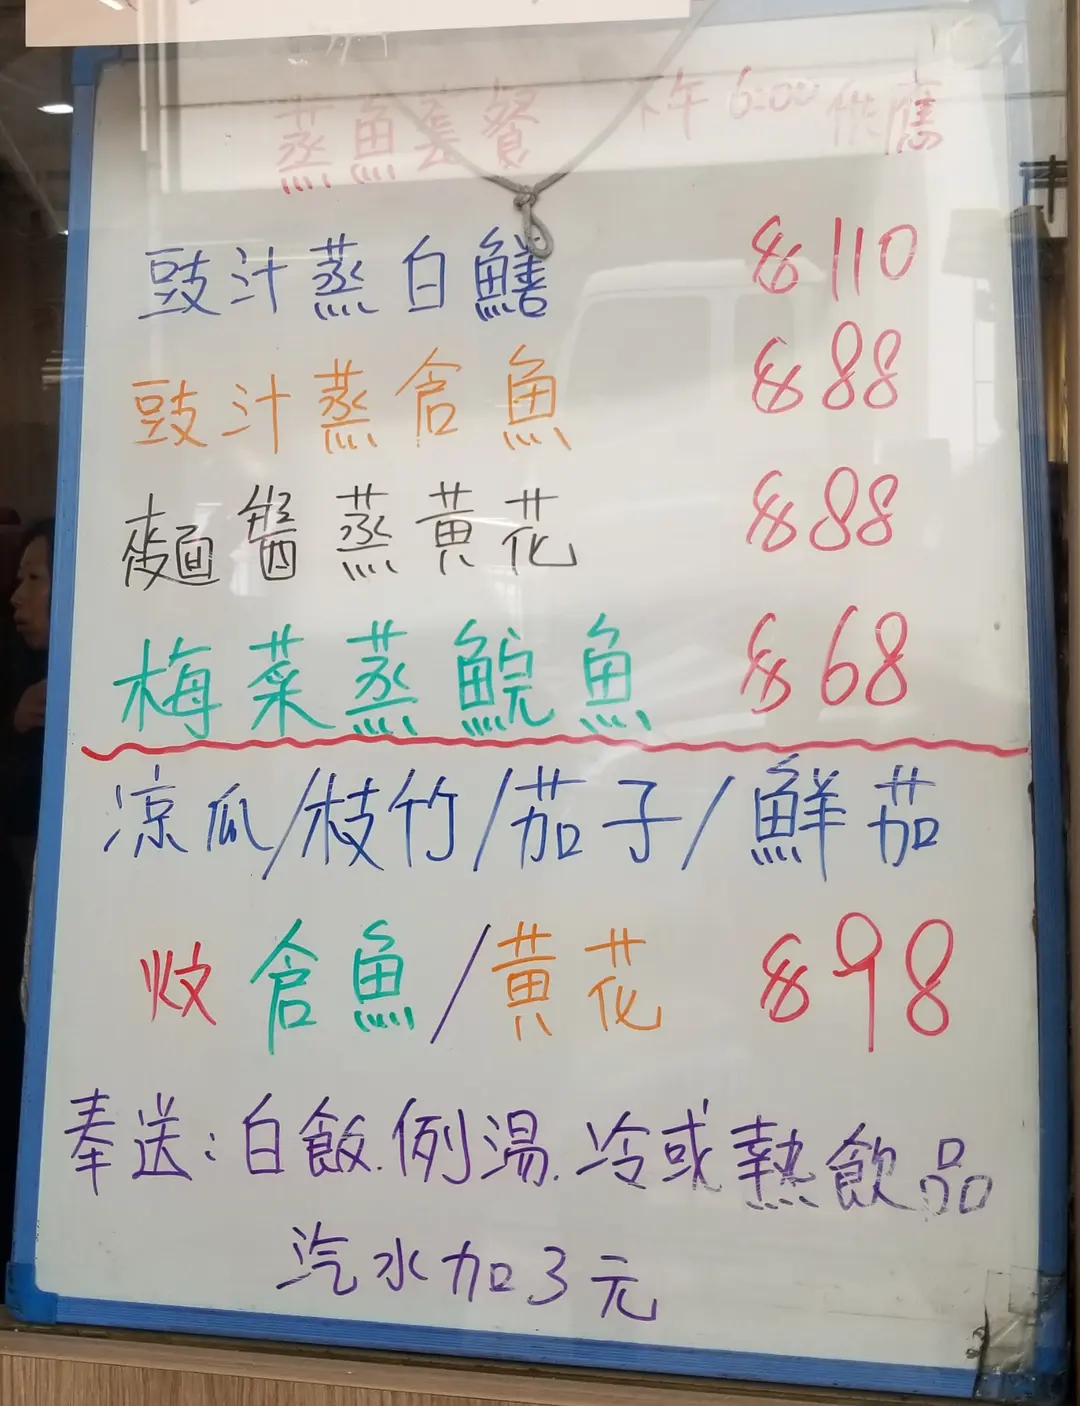 蒸魚套餐 下午6:00供應
豉汁蒸白鱔 $110
豉汁蒸倉魚 $88
麵醬蒸黃花 $88
梅菜蒸鯇魚 $68
凉瓜/枝竹/茄子/鮮茄
炆倉魚/黃花 $98
奉送:白飯.例湯.冷或熱飲品
汽水加3元